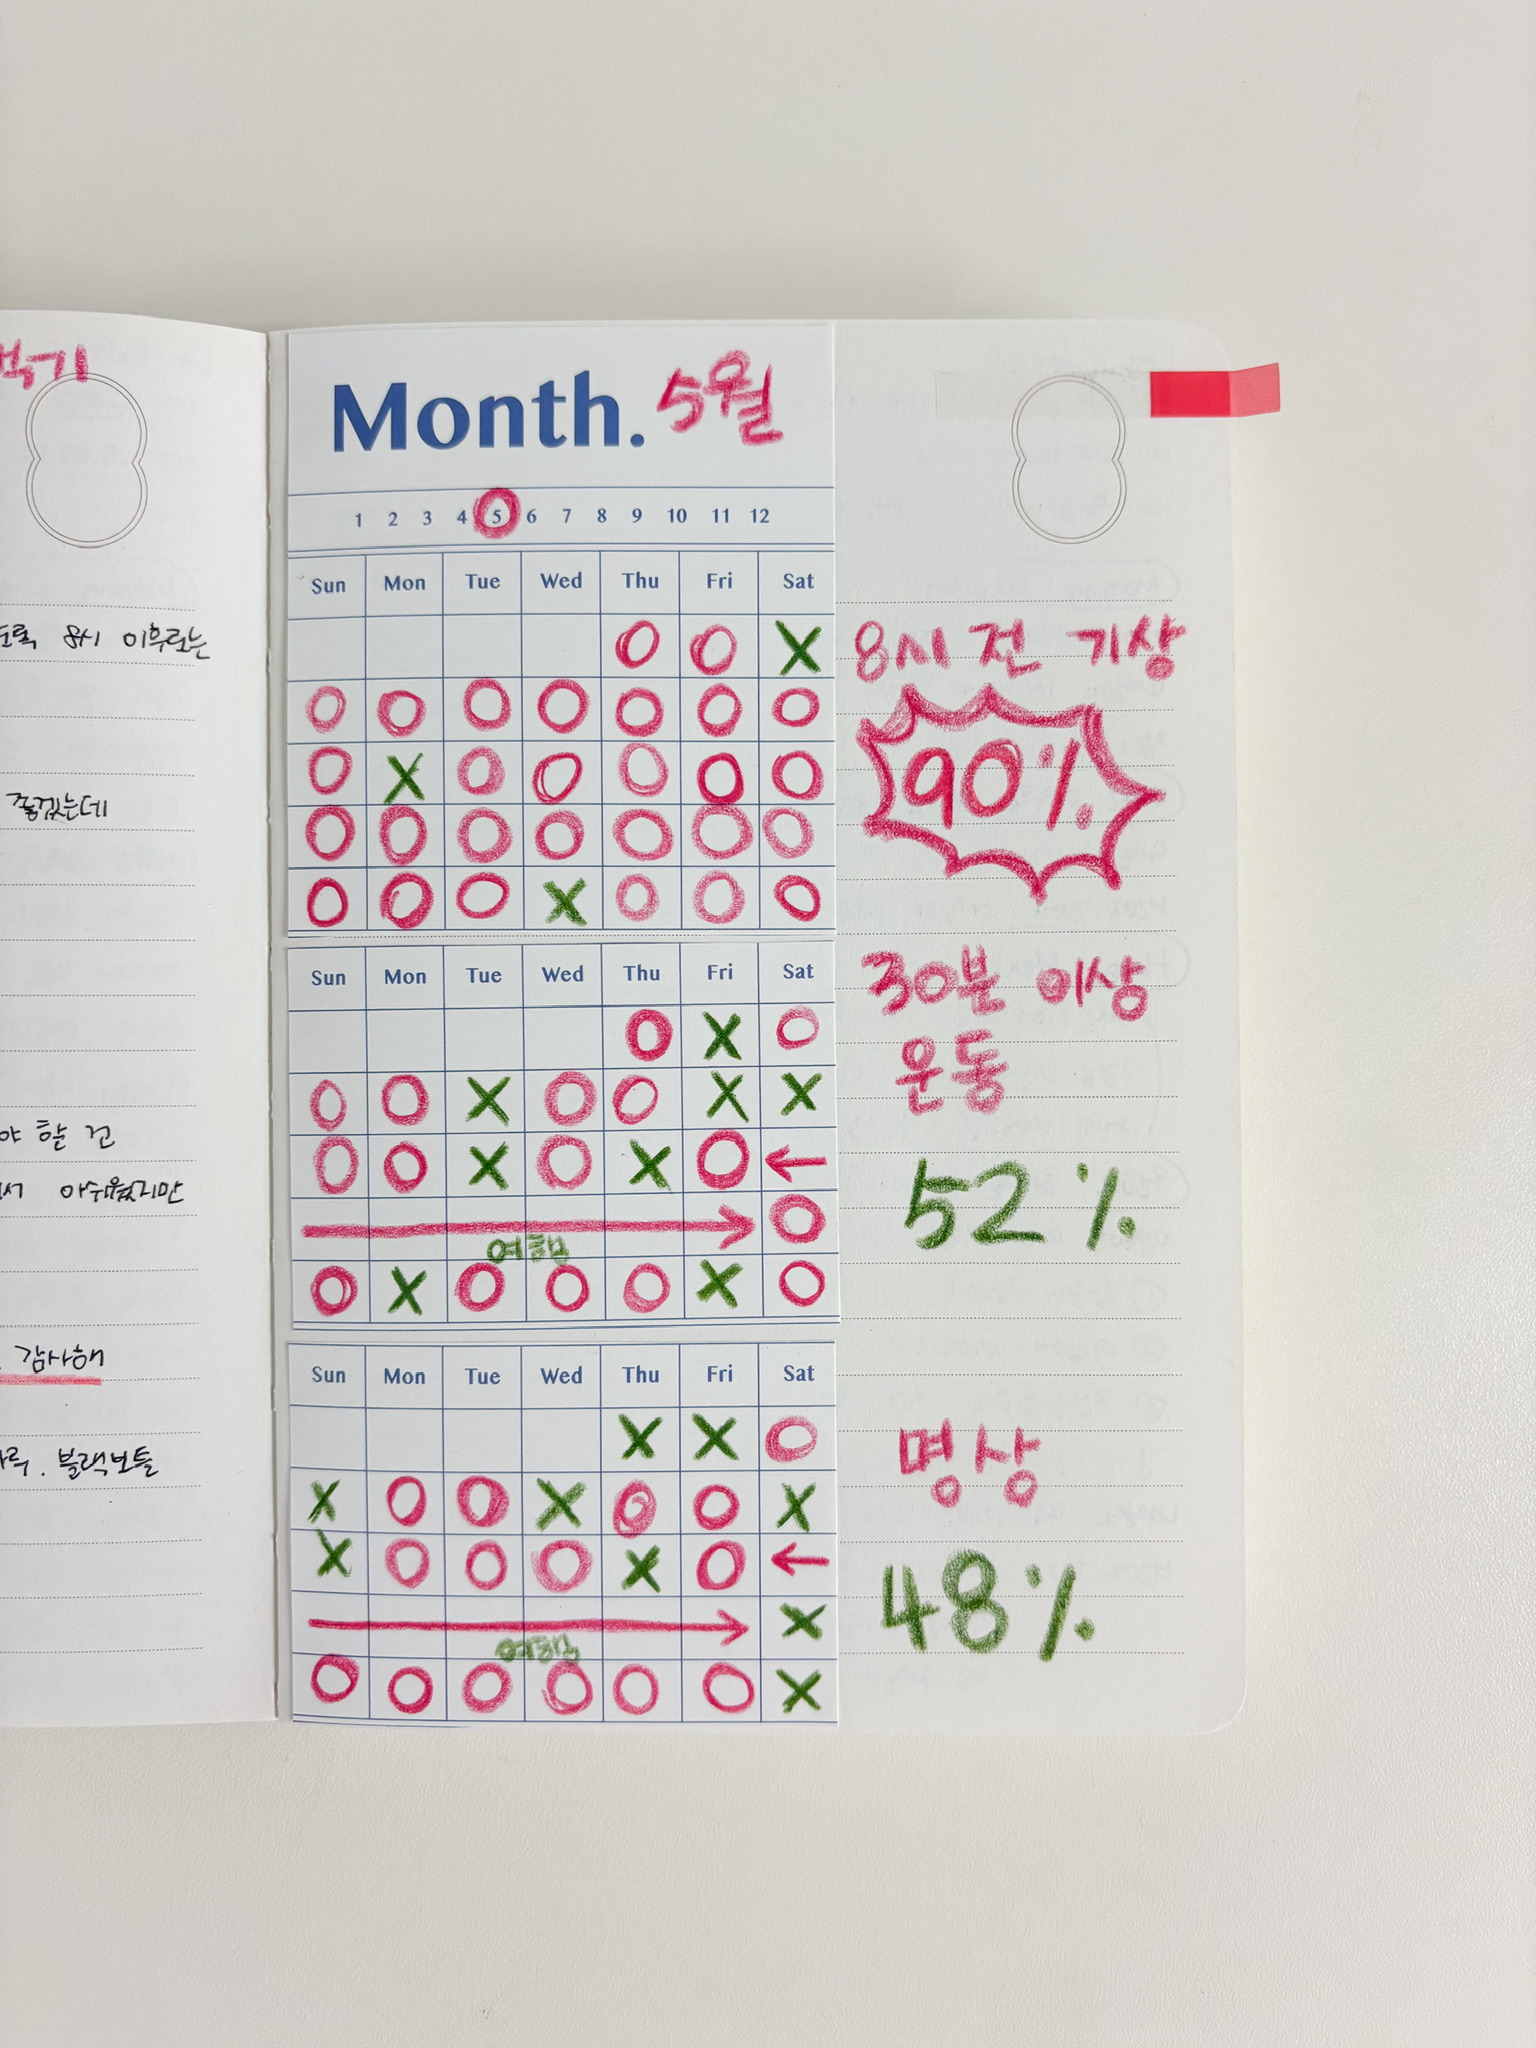 8시 이후로는
좋겠는데
야 할 건
서 아쉬웠지만
감사해
블랙보틀
Month. 5월
1 2 3 4 5 6 7 8 9 10 11 12
Sun Mon Tue Wed Thu Fri Sat
O O X
O O O O O O O
O X O O O O O
O O O O O O O
O O O X O O O
8시 전 기상
90%
Sun Mon Tue Wed Thu Fri Sat
O X O
O O X O O X X
O O X O X O ←
→ O
O X O O O X O
30분 이상
운동
52%
Sun Mon Tue Wed Thu Fri Sat
X X O
X O O X O O X
X O O O X O ←
→ X
O O O O O O X
명상
48%